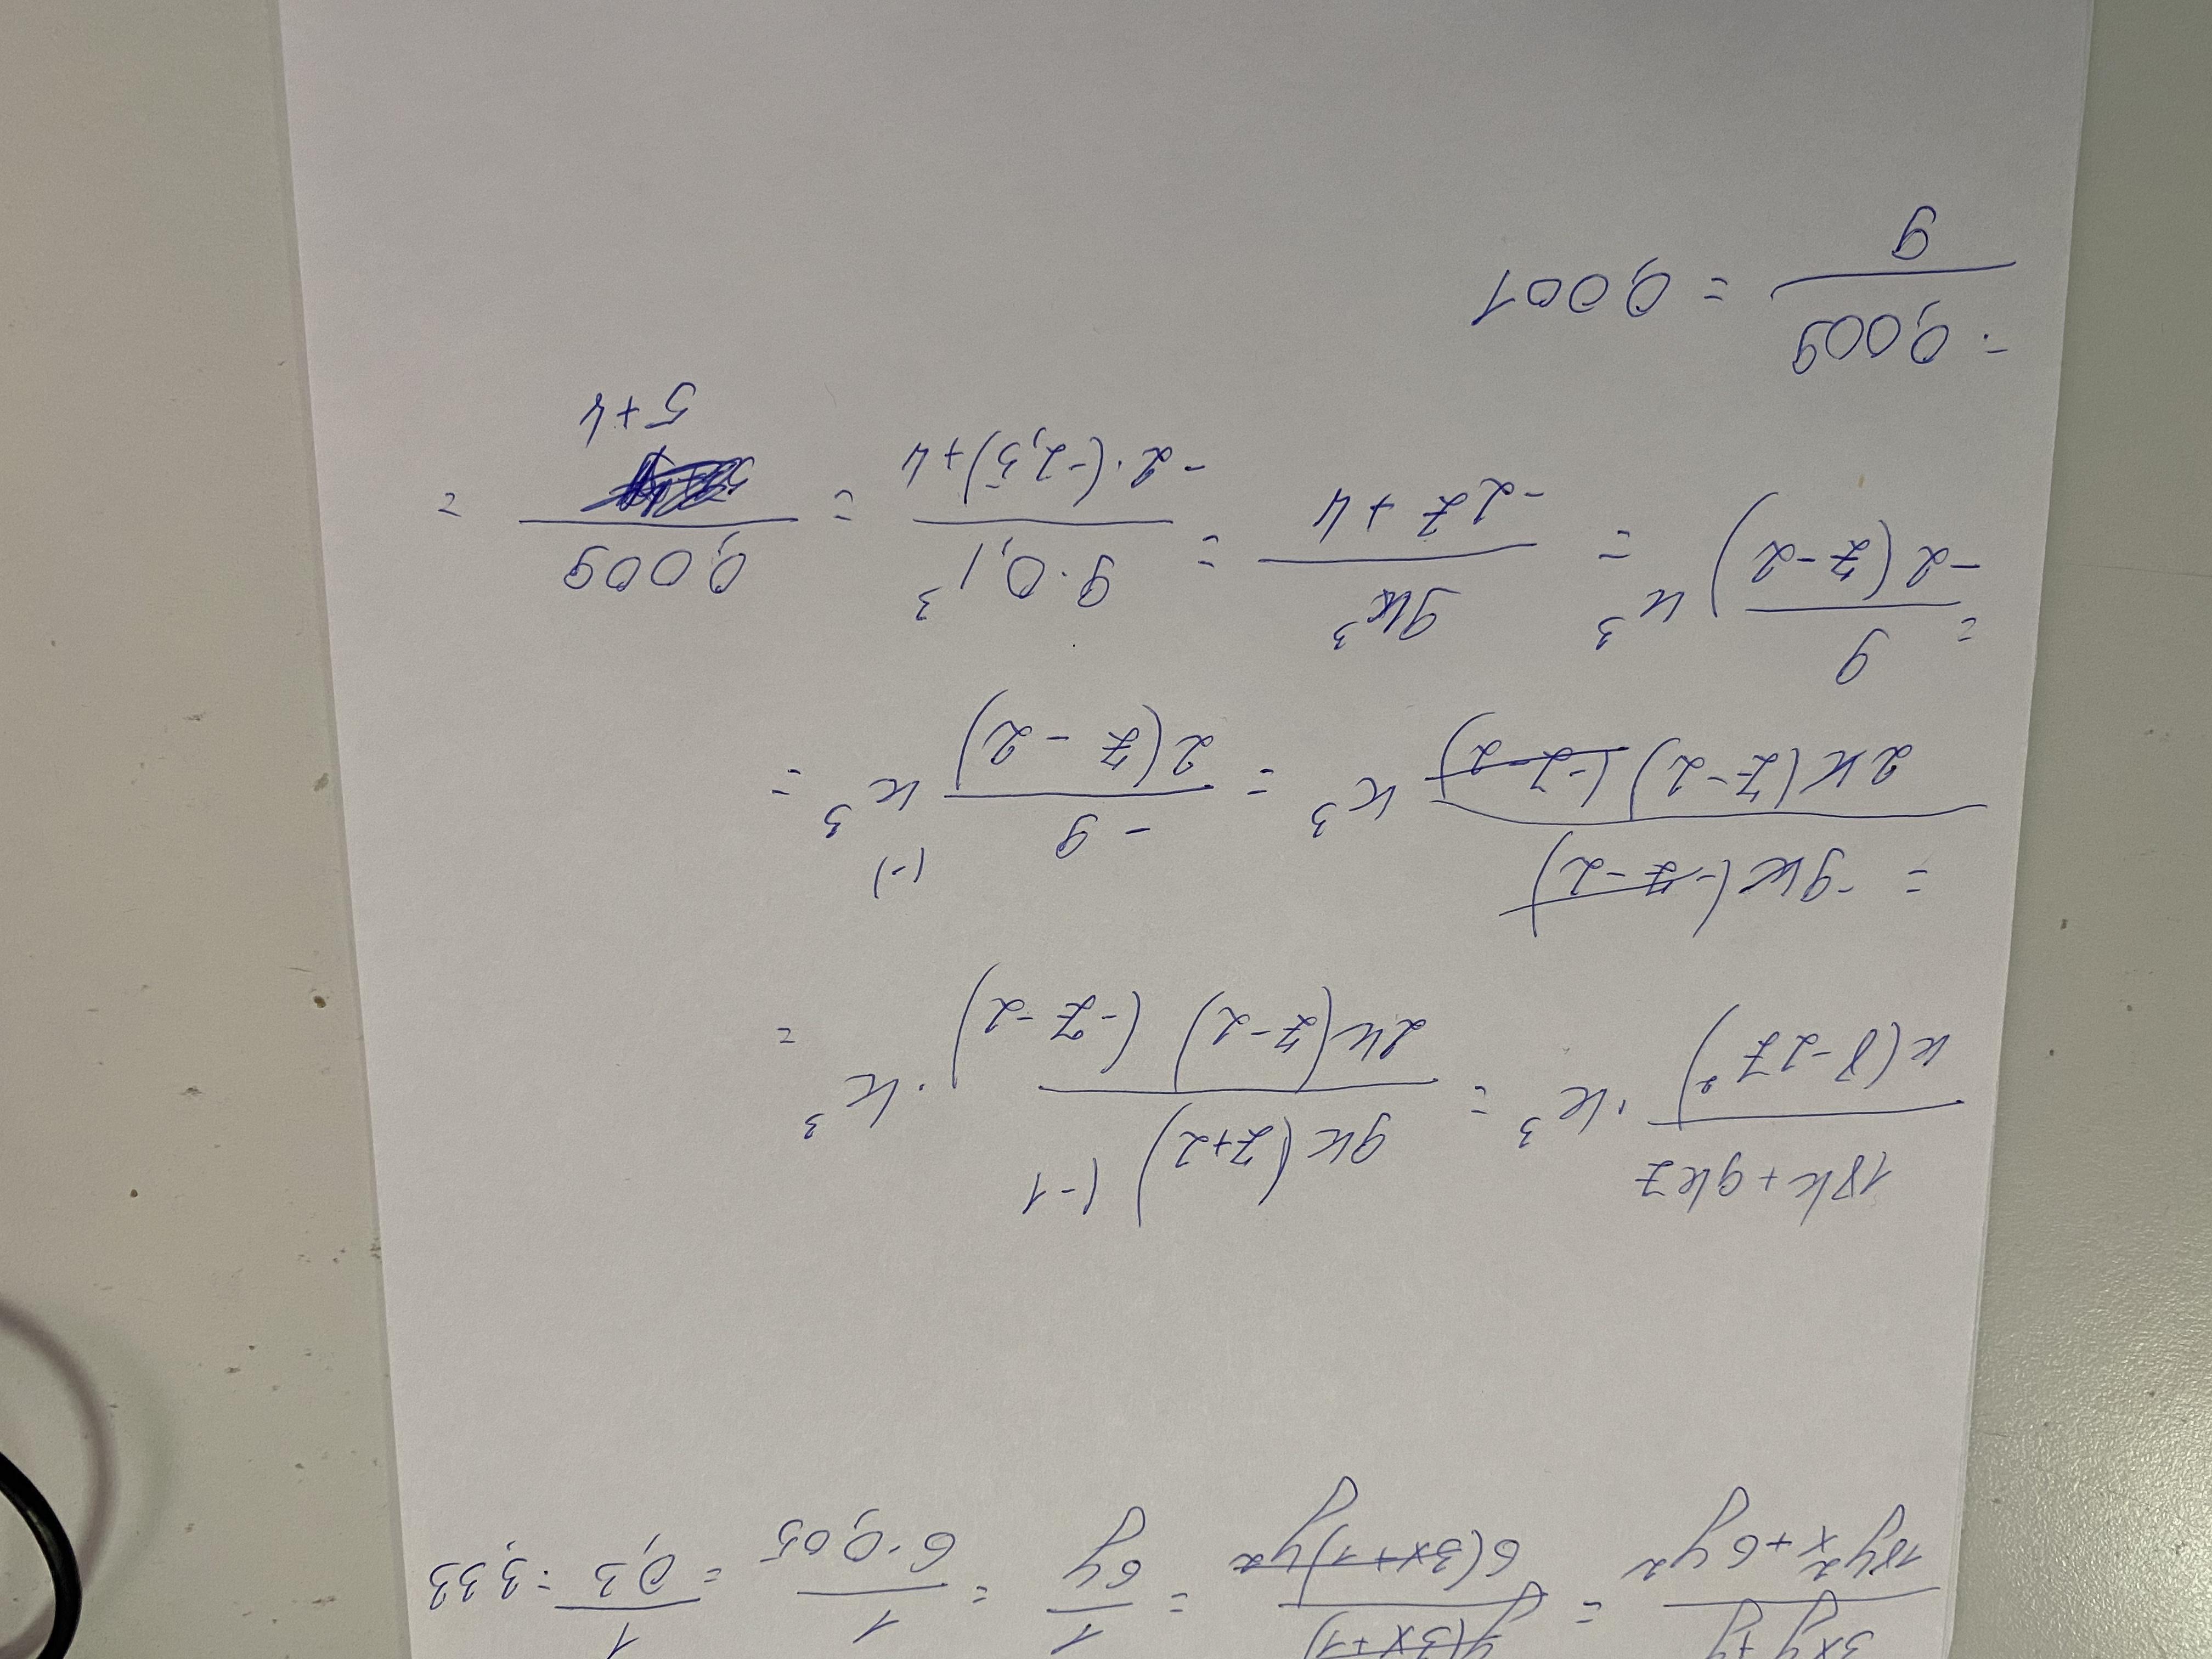 3xy+y / 18y²x+6y² = y(3x+1) / 6(3x+1)y² = 1/6y = 1/6·0,05 = 1/0,3 = 3,33
18k+9kz / k(8-2z²) · k³ = 9k(z+2) (-1 / 2k(z-2) (-z-2) · k³ =
= -9k(-z-2) / 2k(z-2)(-z-2) k³ = -9 / 2(z-2) k³ (-) =
= 9 / -2(z-2) k³ = 9k³ / -2z+4 = 9·0,1³ / -2·(-2,5)+4 = 0,009 / 5+4 =
= 0,009 / 9 = 0,001